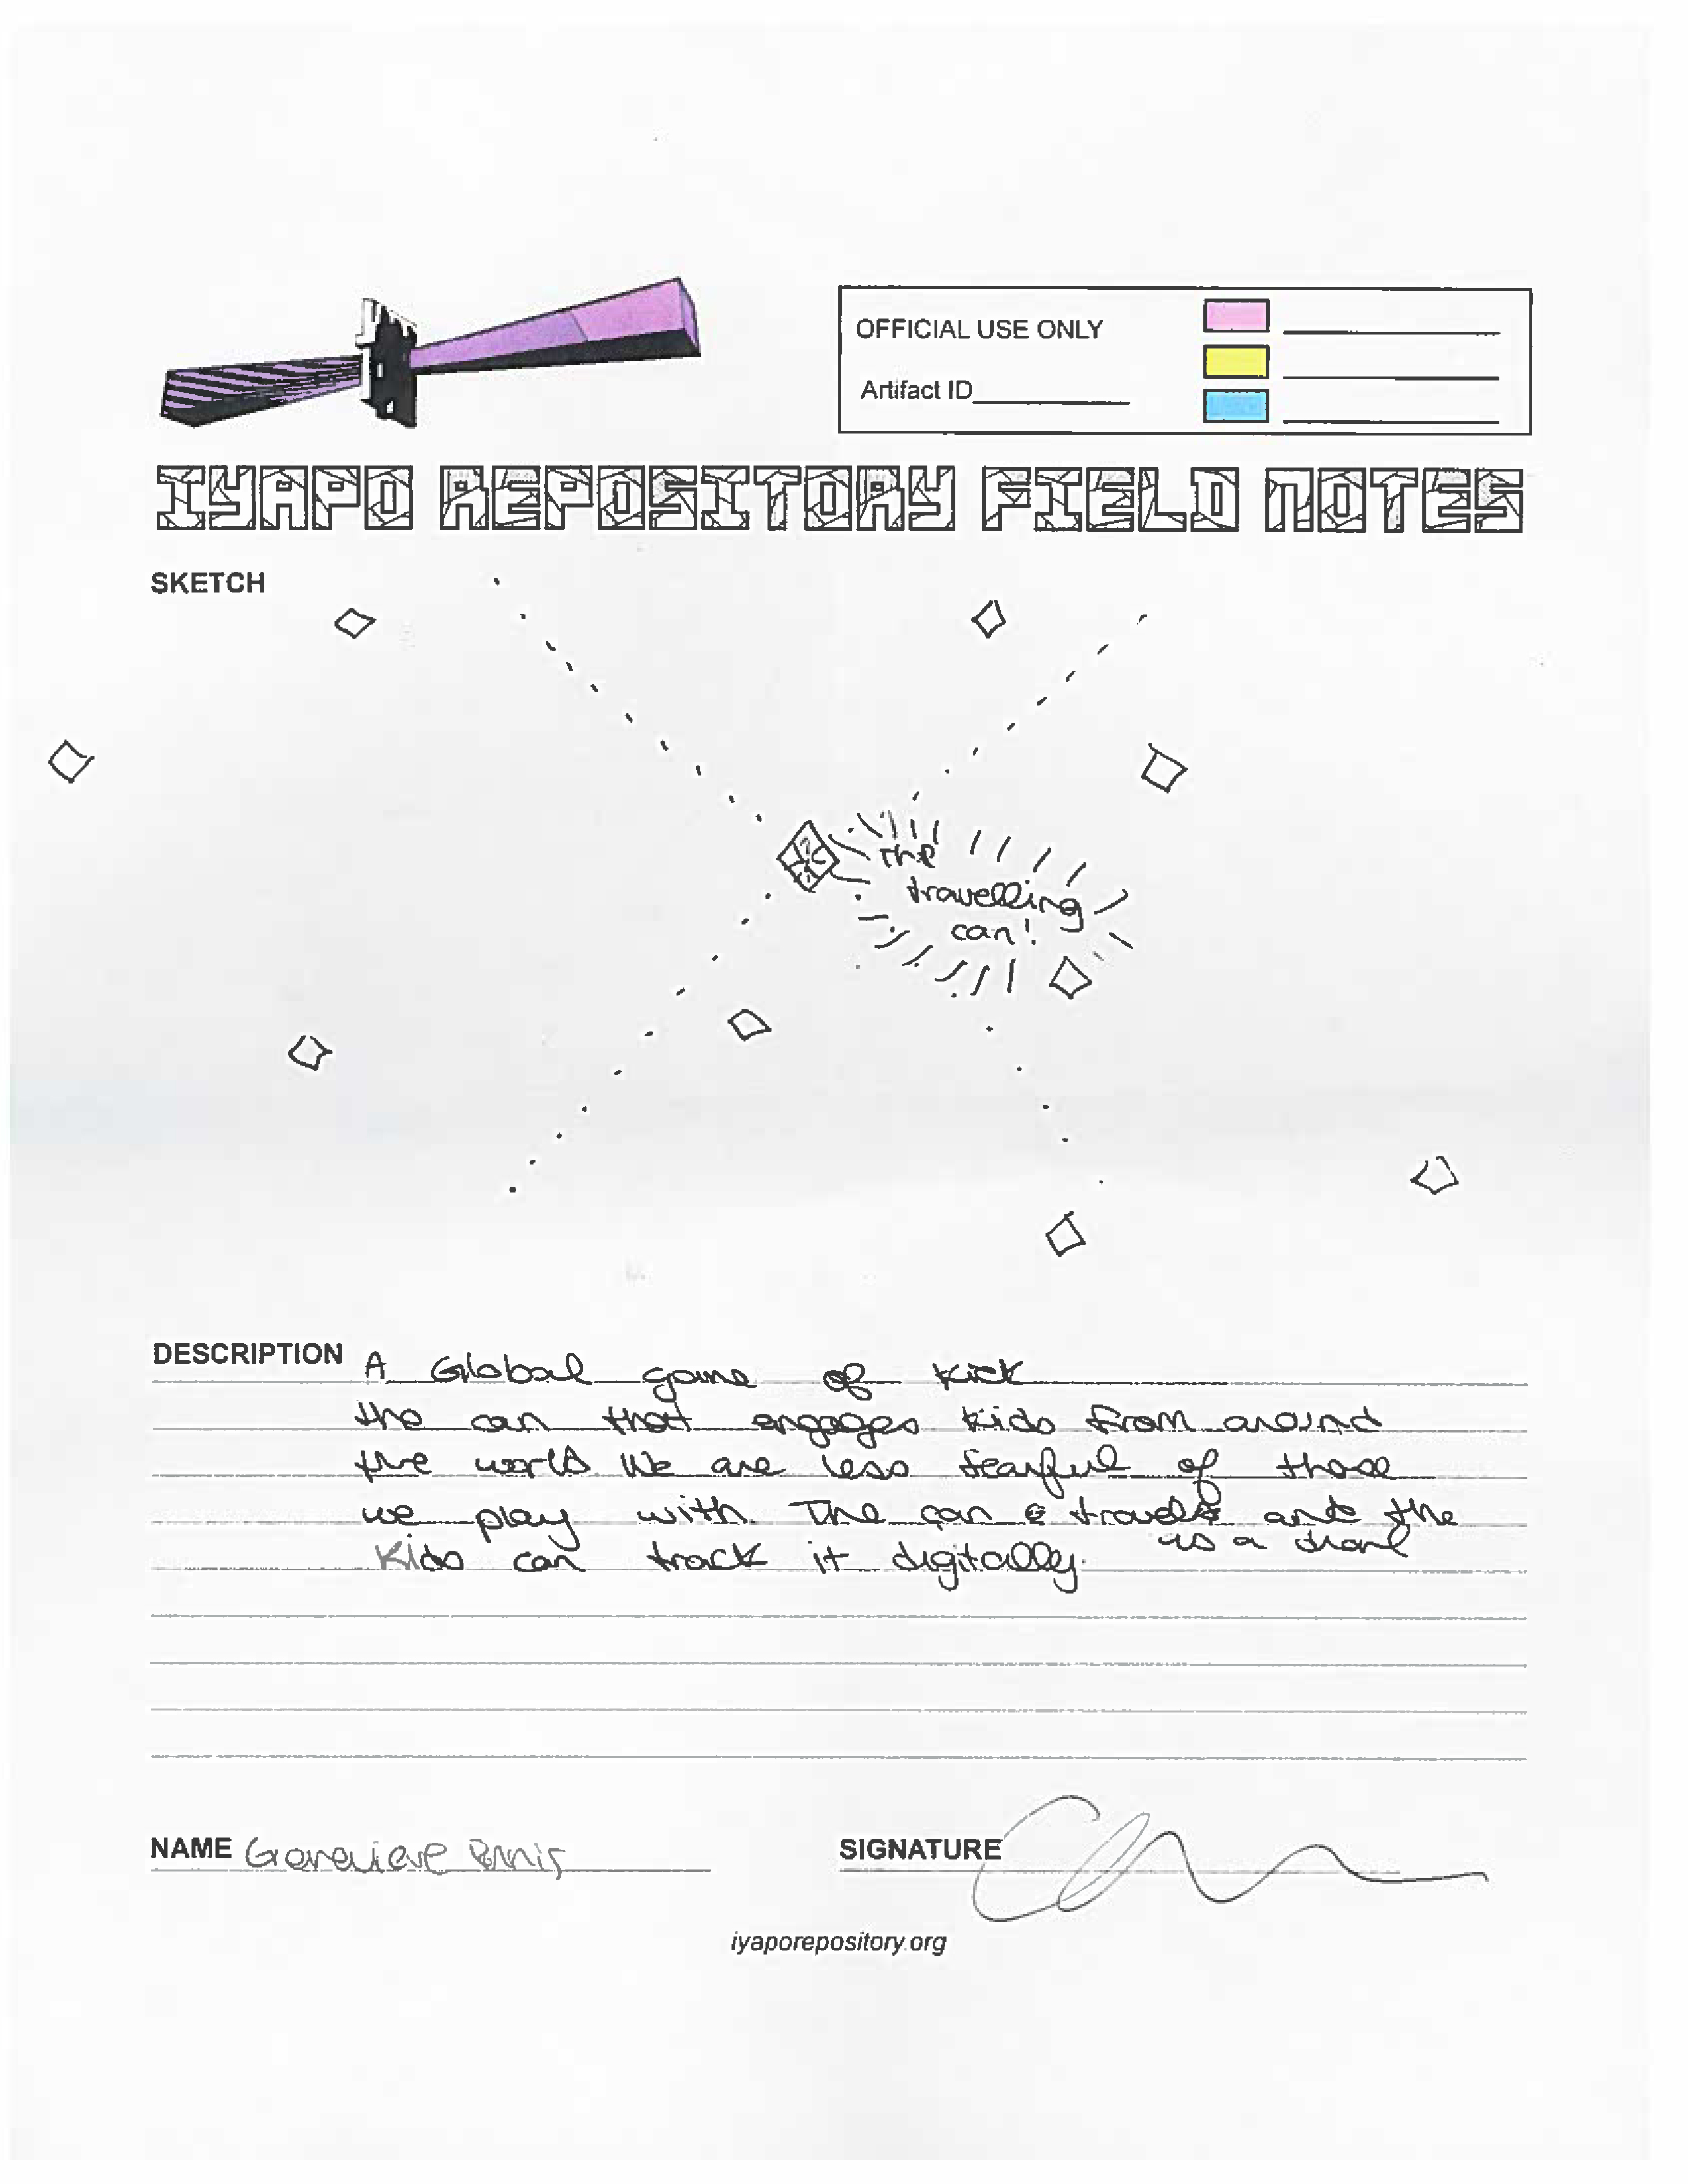 OFFICIAL USE ONLY
Artifact ID
IYAPO REPOSITORY FIELD NOTES
SKETCH
The
travelling
can!
DESCRIPTION A Global game of kick
the can that engages kids from around
the world. We are less fearful of those
we play with. The can travels and the
kids can track it digitally. as a
NAME Genevieve
SIGNATURE
iyaporepository.org